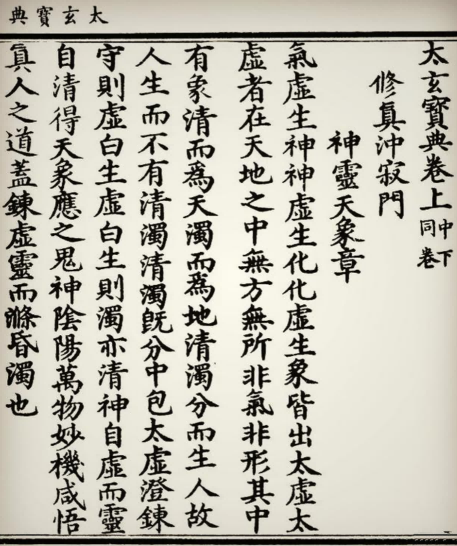 太玄寶典
太玄寶典卷上中下同卷
修真沖寂門
神靈天象章
氣虛生神神虛生化化虛生象皆出太虛太
虛者在天地之中無方無所非氣非形其中
有象清而爲天濁而爲地清濁分而生人故
人生而不有清濁清濁旣分中包太虛澄鍊
守則虛白生虛白生則濁亦清神自虛而靈
自清得天象應之鬼神陰陽萬物妙機咸悟
真人之道蓋鍊虛靈而滌昏濁也